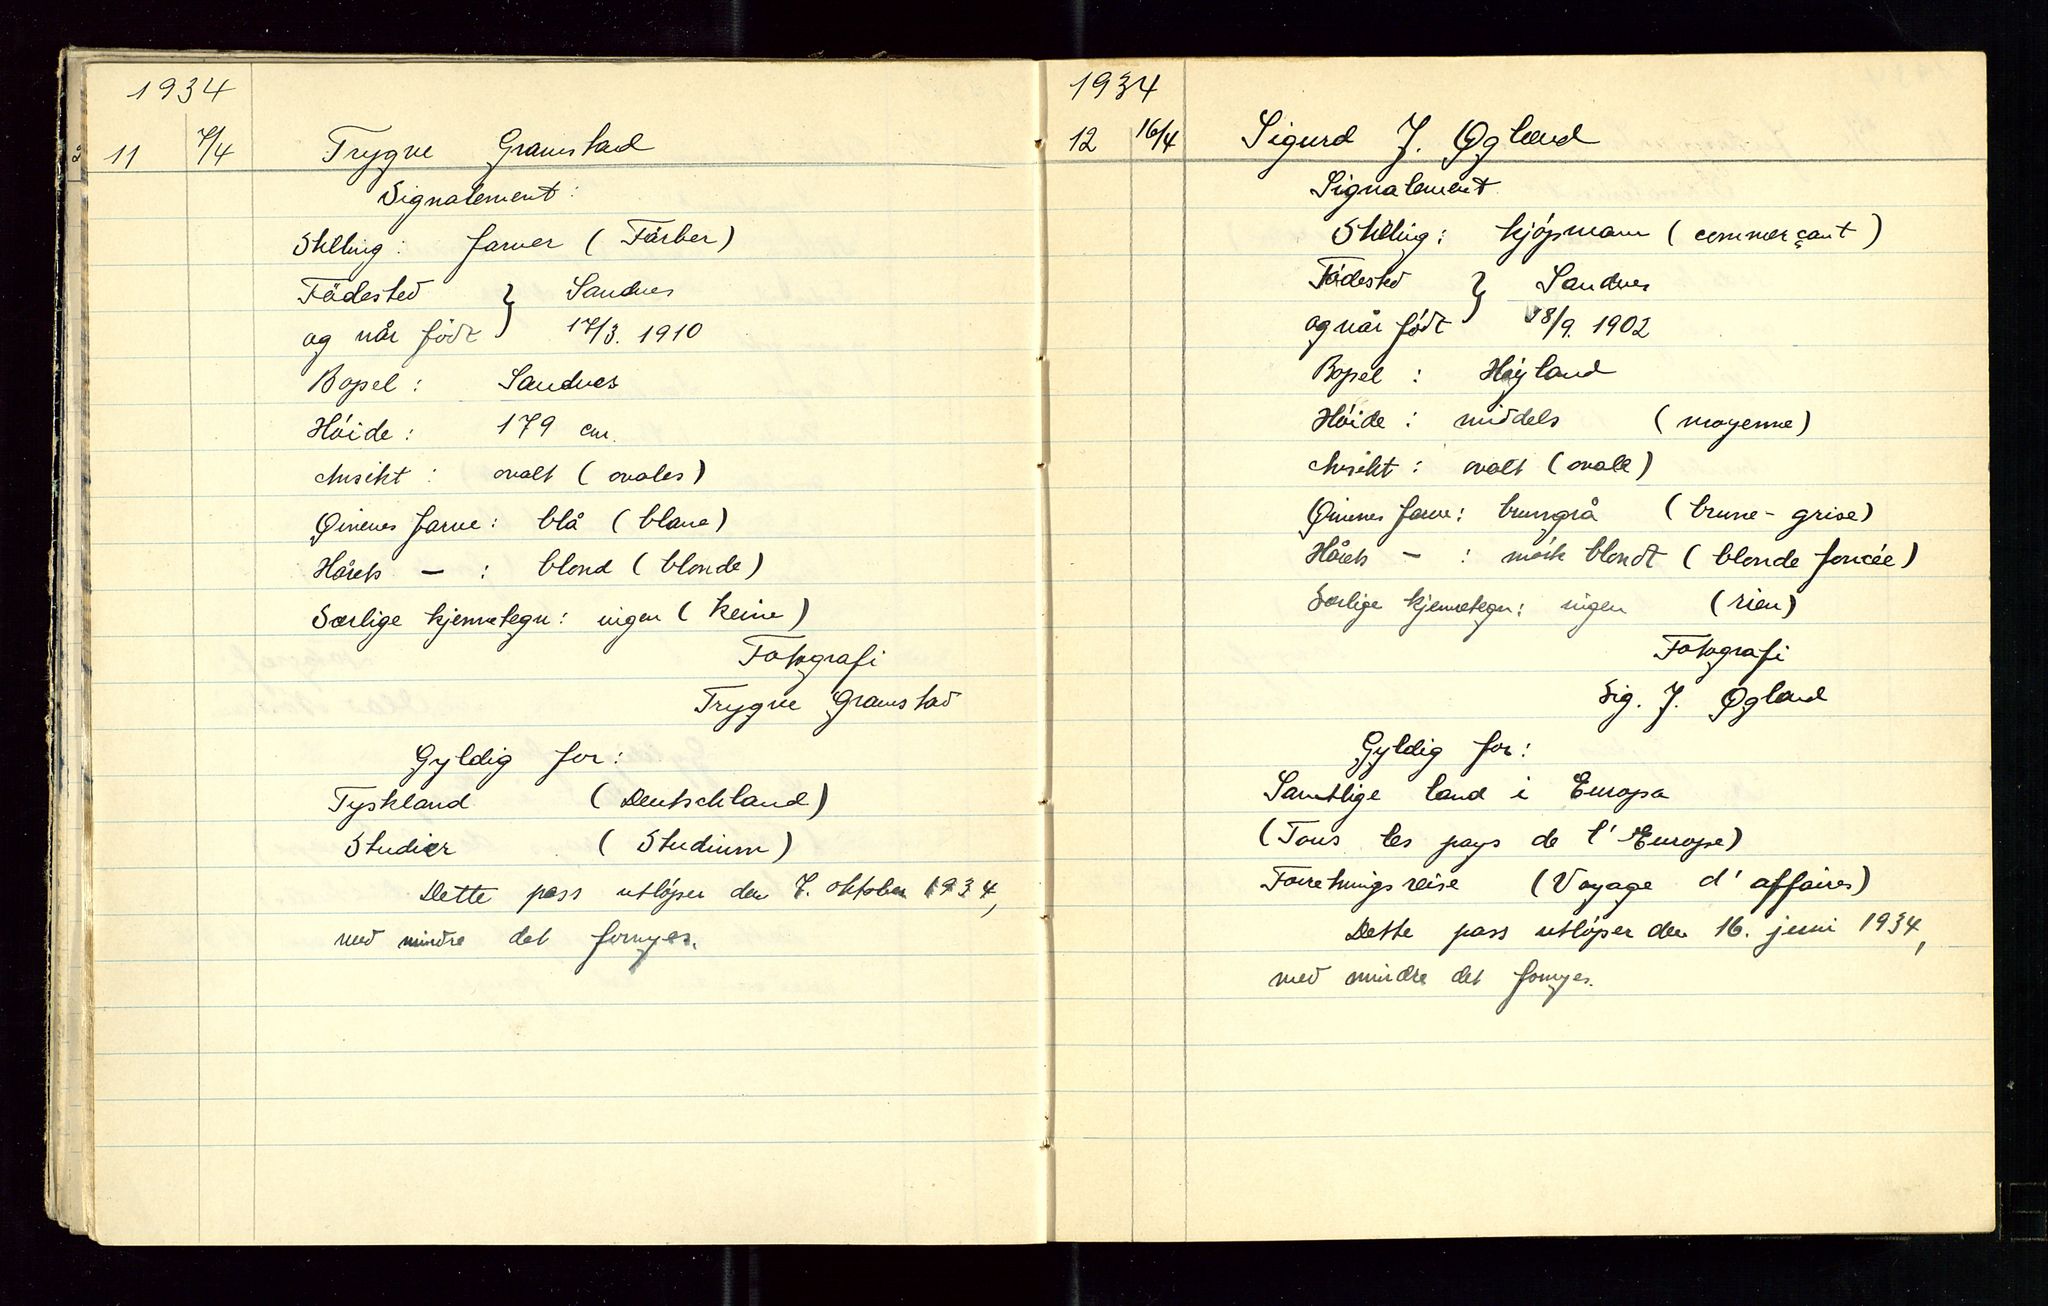 1934
11 7/4 Trygve Gramstad
Signalement:
Stilling: farver (Färber)
Födested } Sandnes
og når födt } 17/3. 1910
Bopel: Sandnes
Höide: 179 cm.
Ansikt: ovalt (ovales)
Øinenes farve: blå (blaue)
Hårets — : blond (blonde)
Særlige kjennetegn: ingen (keine)
Fotografi
Trygve Gramstad
Gyldig for:
Tyskland (Deutschland)
Studier (Studium)
Dette pass utlöper den 7. oktober 1934,
med mindre det fornyes.
1934
12 16/4 Sigurd J. Øgland
Signalement
Stilling: kjöpmann (commerçant)
Födested } Sandnes
og når födt } 8/9. 1902
Bopel: Høyland
Höide: middels (moyenne)
Ansikt: ovalt (ovale)
Øinenes farve: brungrå (brune-grise)
Hårets — : mörk blondt (blonde foncée)
Særlige kjennetegn: ingen (rien)
Fotografi
Sig. J. Øgland
Gyldig for:
Samtlige land i Europa
(Tous les pays de l'Europe)
Forretningsreise (Voyage d'affaires)
Dette pass utlöper den 16. juni 1934,
med mindre det fornyes.